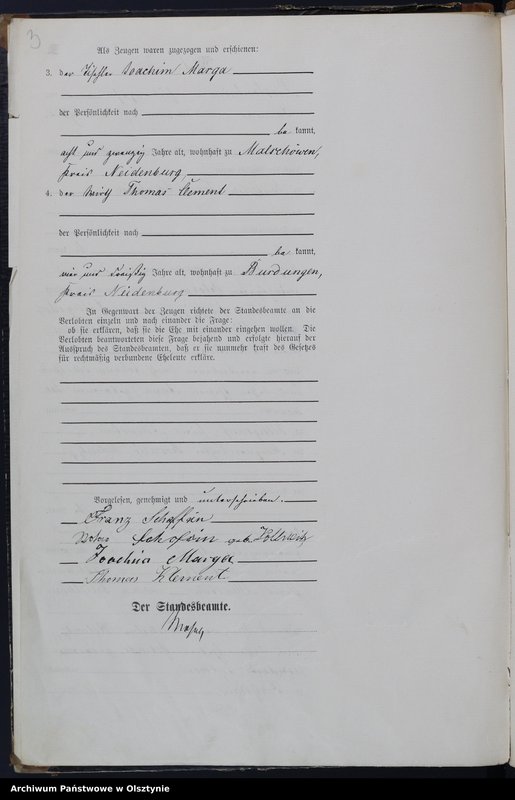 3
Als Zeugen waren zugezogen und erschienen:
3. der Tischler Joachim Marga
der Persönlichkeit nach
be kannt,
acht und zwanzig Jahre alt, wohnhaft zu Malschöwen,
Kreis Neidenburg
4. der Wirth Thomas Clement
der Persönlichkeit nach
be kannt,
vier und dreißig Jahre alt, wohnhaft zu Burdungen,
Kreis Neidenburg
In Gegenwart der Zeugen richtete der Standesbeamte an die
Verlobten einzeln und nach einander die Frage:
ob sie erklären, daß sie die Ehe mit einander eingehen wollen. Die
Verlobten beantworteten diese Frage bejahend und erfolgte hierauf der
Ausspruch des Standesbeamten, daß er sie nunmehr kraft des Gesetzes
für rechtmäßig verbundene Eheleute erkläre.
Vorgelesen, genehmigt und unterschrieben.
Franz
geb.
Joachim Marga
Thomas Klement
Der Standesbeamte.
Archiwum Państwowe w Olsztynie